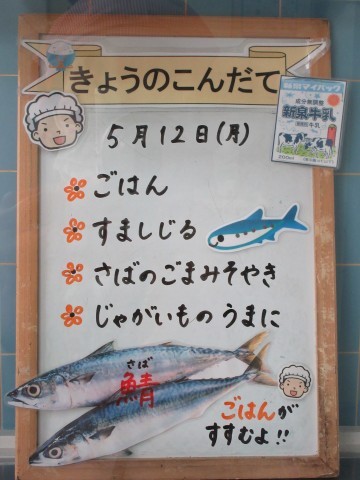 きょうのこんだて
5月12日(月)
ごはん
すましじる
さばのごまみそやき
じゃがいものうまに
さば
鯖
ごはんが
すすむよ!!
成分無調整
新泉牛乳